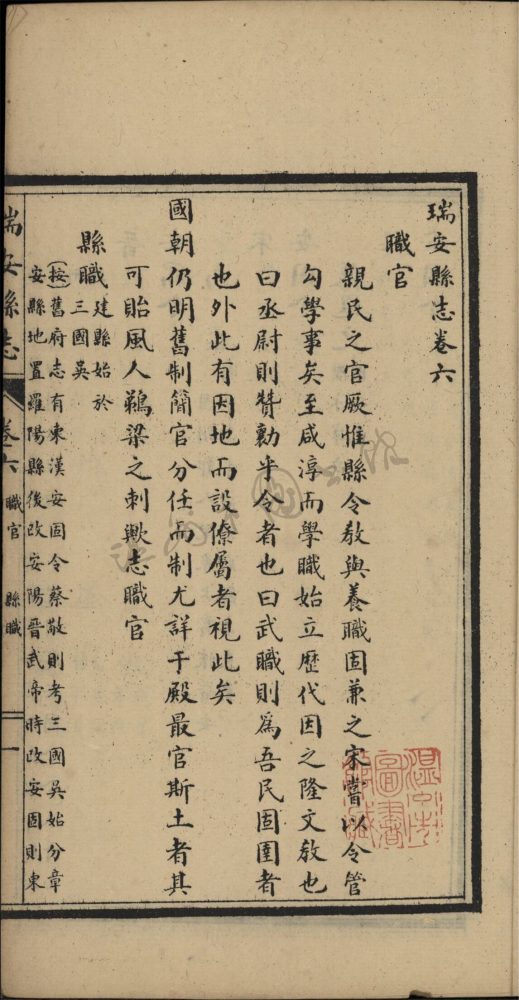 瑞安縣志卷六
職官
親民之官厥惟縣令教與養職固兼之宋嘗以令管
勾學事矣至咸淳而學職始立歷代因之隆文教也
曰丞尉則贊勷乎令者也曰武職則爲吾民固圉者
也外此有因地而設僚屬者視此矣
國朝仍明舊制簡官分任而制尤詳于殿最官斯土者其
可貽風人鵜梁之刺歟志職官
縣職
建縣始於
三國吳
(按)舊府志有東漢安固令蔡敬則考三國吳始分章
安縣地置羅陽縣後改安陽晉武帝時改安固則東
瑞安縣志
卷六
職官
縣職
一